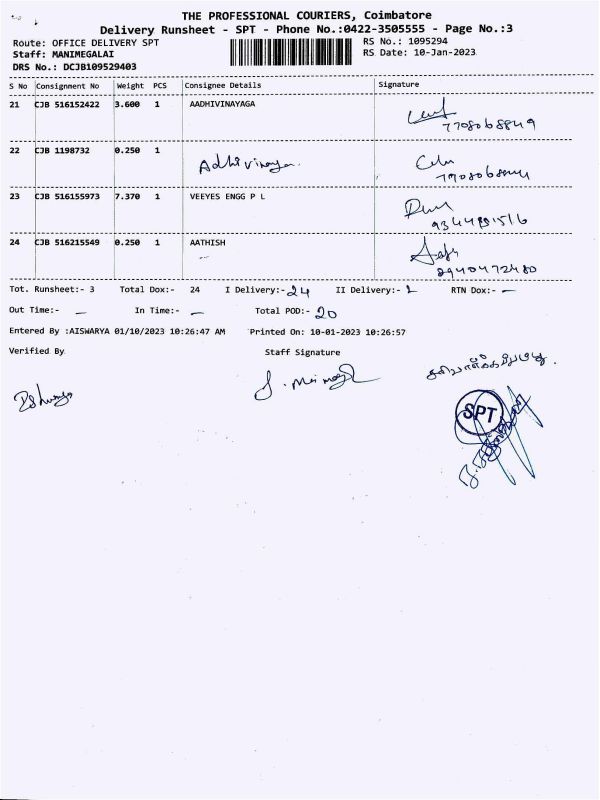 THE PROFESSIONAL COURIERS, Coimbatore
Delivery Runsheet - SPT - Phone No.:0422-3505555 - Page No.:3
Route: OFFICE DELIVERY SPT
RS No.: 1095294
Staff: MANIMEGALAI
RS Date: 10-Jan-2023
DRS No.: DCJB109529403
S No Consignment No Weight PCS Consignee Details Signature
21 CJB 516152422 3.600 1 AADHIVINAYAGA
7708068849
22 CJB 1198732 0.250 1
Adhivinayaga
23 CJB 516155973 7.370 1 VEEYES ENGG P L
24 CJB 516215549 0.250 1 AATHISH
Tot. Runsheet:- 3 Total Dox:- 24 I Delivery:- 24 II Delivery:- RTN Dox:- —
Out Time:- — In Time:- — Total POD:- 20
Entered By :AISWARYA 01/10/2023 10:26:47 AM Printed On: 10-01-2023 10:26:57
Verified By Staff Signature
SPT